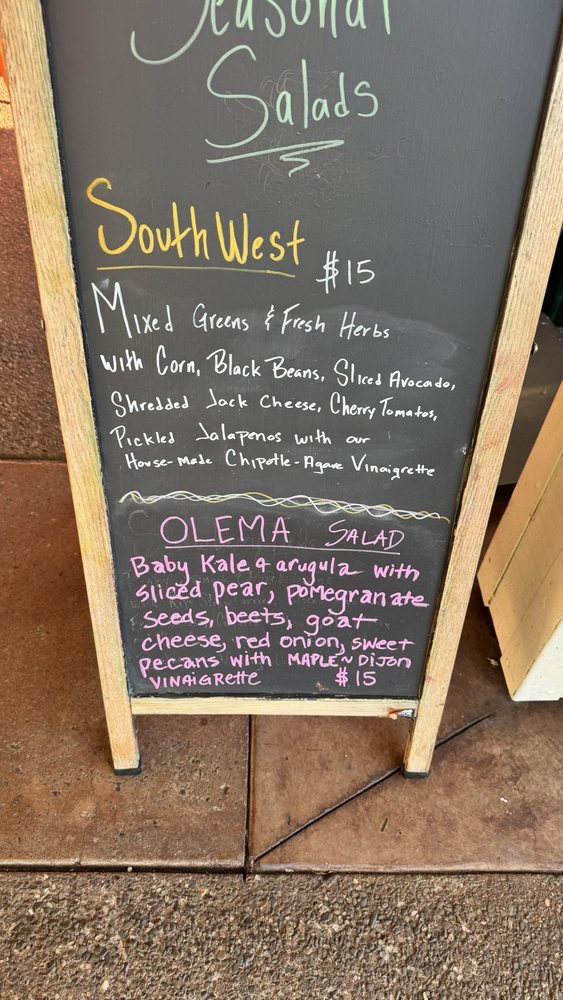 Seasonal
Salads
SouthWest
$15
Mixed Greens & Fresh Herbs
with Corn, Black Beans, Sliced Avocado,
Shredded Jack Cheese, Cherry Tomatos,
Pickled Jalapenos with our
House-made Chipotle-Agave Vinaigrette
OLEMA SALAD
Baby Kale & arugula with
sliced pear, pomegranate
seeds, beets, goat
cheese, red onion, sweet
pecans with MAPLE~DIJON
VINAIGRETTE $15